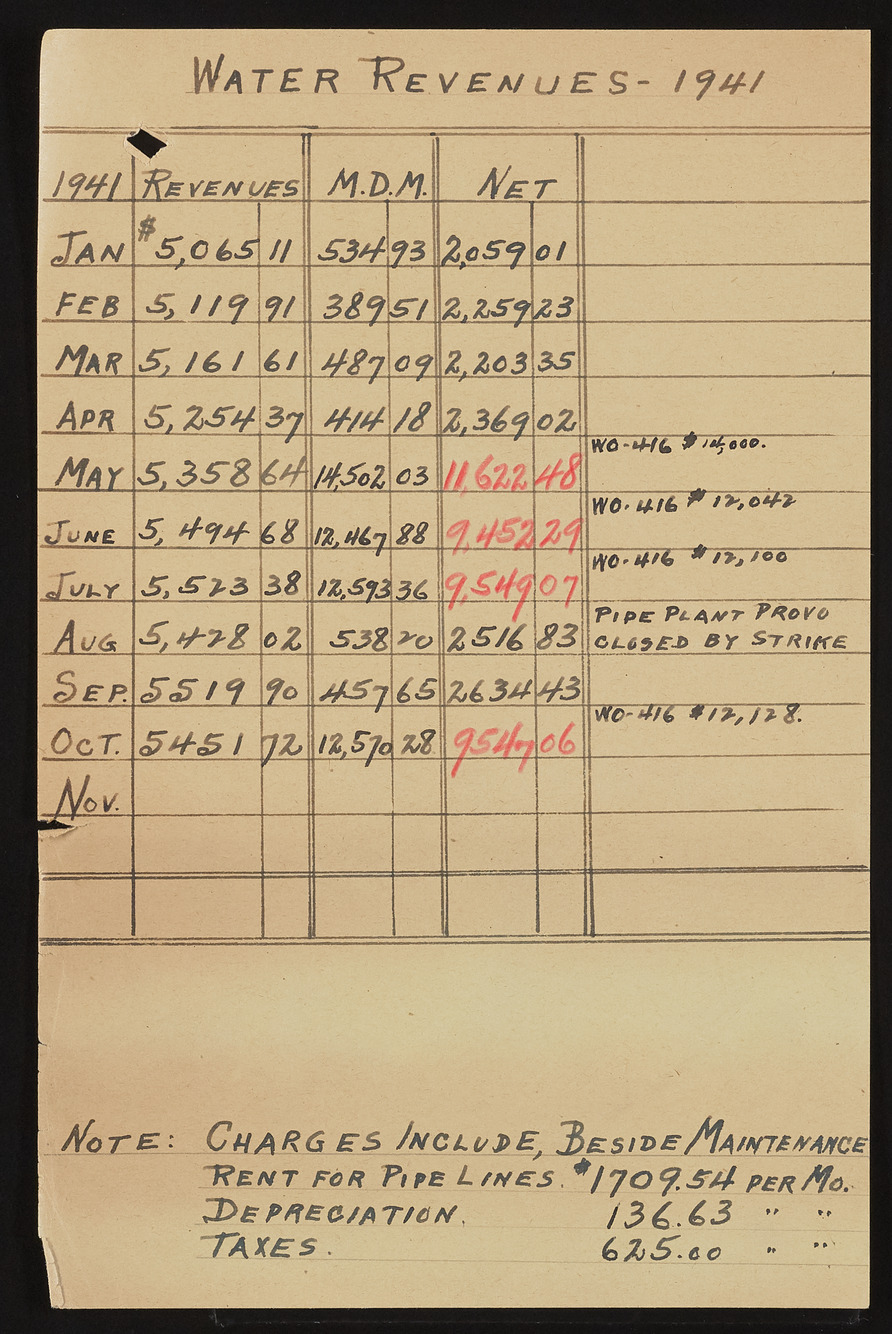 WATER REVENUES- 1941
1941 REVENUES M.D.M. NET
JAN $5,065 11 534 93 2,059 01
FEB 5,119 91 389 51 2,259 23
MAR 5,161 61 487 09 2,203 35
APR 5,254 37 414 18 2,369 02
WO-416 $14,000.
MAY 5,358 64 14,502 03 11,622 48
WO. 416 $12,042
JUNE 5,494 68 12,467 88 9,452 29
WO-416 $12,100
JULY 5,523 38 12,593 36 9,549 07
PIPE PLANT PROVO
AUG 5,428 02 538 20 2516 83 CLOSED BY STRIKE
SEP. 5519 90 457 65 2634 43
WO-416 $12,128.
OCT. 5451 72 12,570 28 9547 06
NOV.
NOTE: CHARGES INCLUDE, BESIDE MAINTENANCE
RENT FOR PIPE LINES. $1709.54 PER MO.
DEPRECIATION. 136.63 " "
TAXES. 625.00 " "